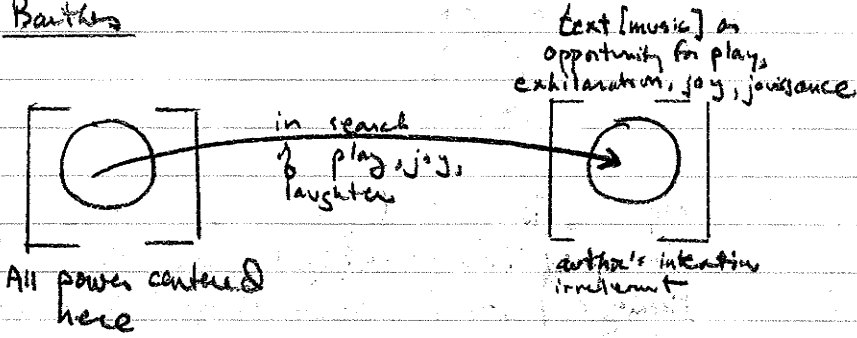 Barthes
text [music] as
opportunity for play,
exhilaration, joy, jouissance
in search
of play, joy,
laughter
All power centered
here
author's intention
irrelevant